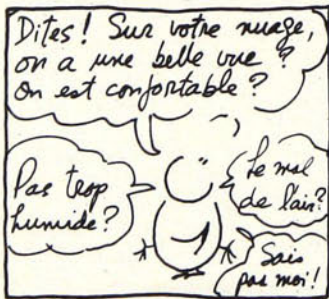 Dites ! Sur votre nuage,
on a une belle vue ?
On est confortable ?
Pas trop
humide ?
Le mal
de l'air ?
Sais
pas moi !